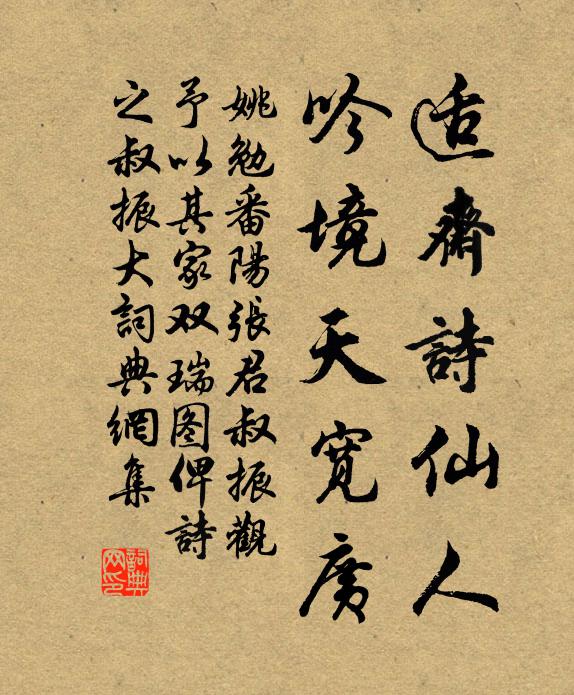 适齋詩仙人
吟境天寬廣
姚勉番陽張君叔振觀
予以其家双瑞图俾詩
之叔振大詞典網集
詞典
网印